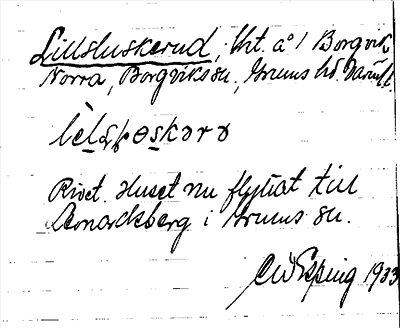 Lillsluskerud, tht. a° 1 Borgvik
Norra, Borgviks sn, Grums hd. Värml.
Rivet. Huset nu flyttat till
Leonardsberg i Grums sn.
CW Esping 1933